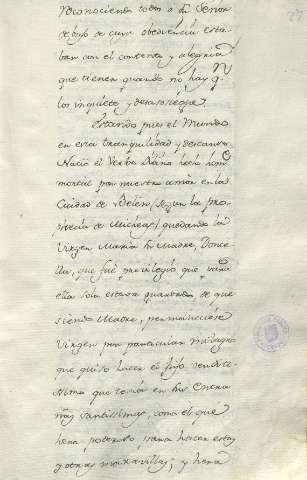 reconociendo todos a un Señor
debajo de cuya obediencia esta-
ban con el contento, y alegria
que tienen quando no hay qn.
los inquiete y desasosiegue.
Estando pues el Mundo
en esta tranquilidad y descanso
Nacio el Verbo Divino hecho hom
mortal por nuestro amor en la
Ciudad de Belén, segun la pro-
fhecia de Micheas, quedando la
Virgen Maria su Madre, Donce
lla, que fué privilegio que para
ella sola estava guardado de que
siendo Madre, permaneciese
Virgen por particular milagro
que quiso hacer el hijo
que tomó en sus Entra
ñas santissimas, como el que
hera poderoso para hacer estas
y otras maravillas; y hera